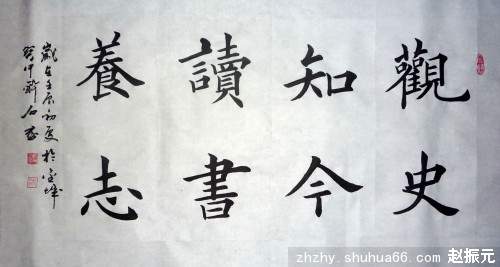 觀史
知今
讀書
養志
歲在壬辰初夏於金城
zhzhy.shuhua66.com 赵振元